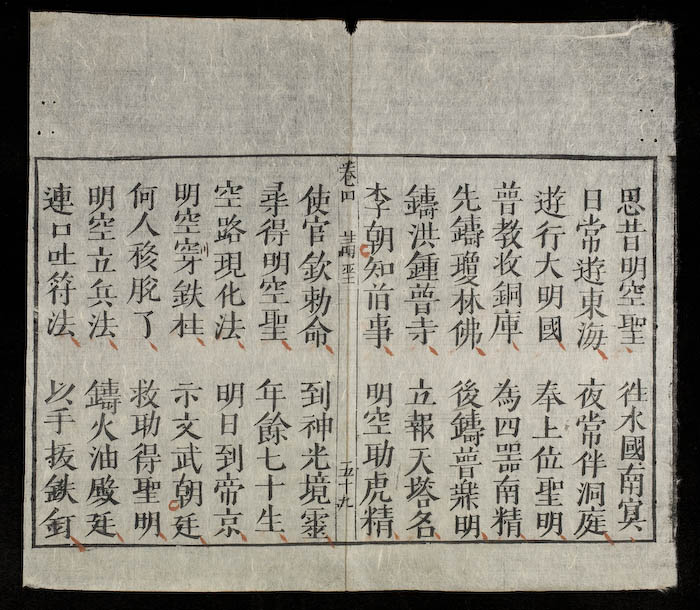 思昔明空聖　徃水國南㝠
日常遊東海　夜常伴洞庭
遊行大明國　奉上位聖明
普教收銅庫　為四噐南精
先鑄瓊林佛　後鑄普樂明
鑄洪鍾普寺　立報天塔名
李朝知前事　明空助虎精
卷四　五十九
使官欽勅命　到神光境靈
尋得明空聖　年餘七十生
空路現化法　明日到帝京
明空穿鉄柱　示文武朝廷
何人移脫了　救助得聖明
明空立兵法　鑄火油殿廷
連口吐符法　以手扳鉄釘